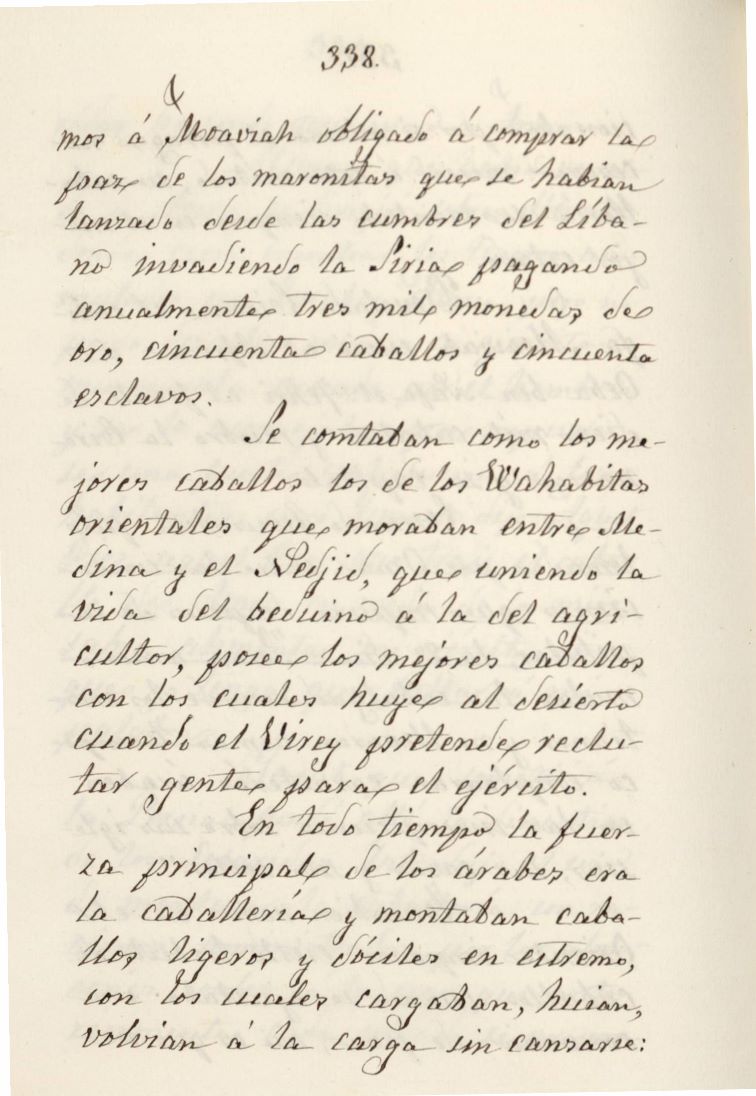 338.
mos á Moaviah obligado á comprar la
paz de los maronitas que se habian
lanzado desde las cumbres del Líba-
no invadiendo la Siria pagando
anualmente tres mil monedas de
oro, cincuenta caballos y cincuenta
esclavos.
Se contaban como los me-
jores caballos los de los Wahabitas
orientales que moraban entre Me-
dina y el Nedjid, que uniendo la
vida del beduino á la del agri-
cultor, posee los mejores caballos
con los cuales huye al desierto
cuando el Virey pretende reclu-
tar gente para el ejército.
En todo tiempo la fuer-
za principal de los árabes era
la caballería y montaban caba-
llos ligeros y dóciles en estremo,
con los cuales cargaban, huian,
volvian á la carga sin cansarse: